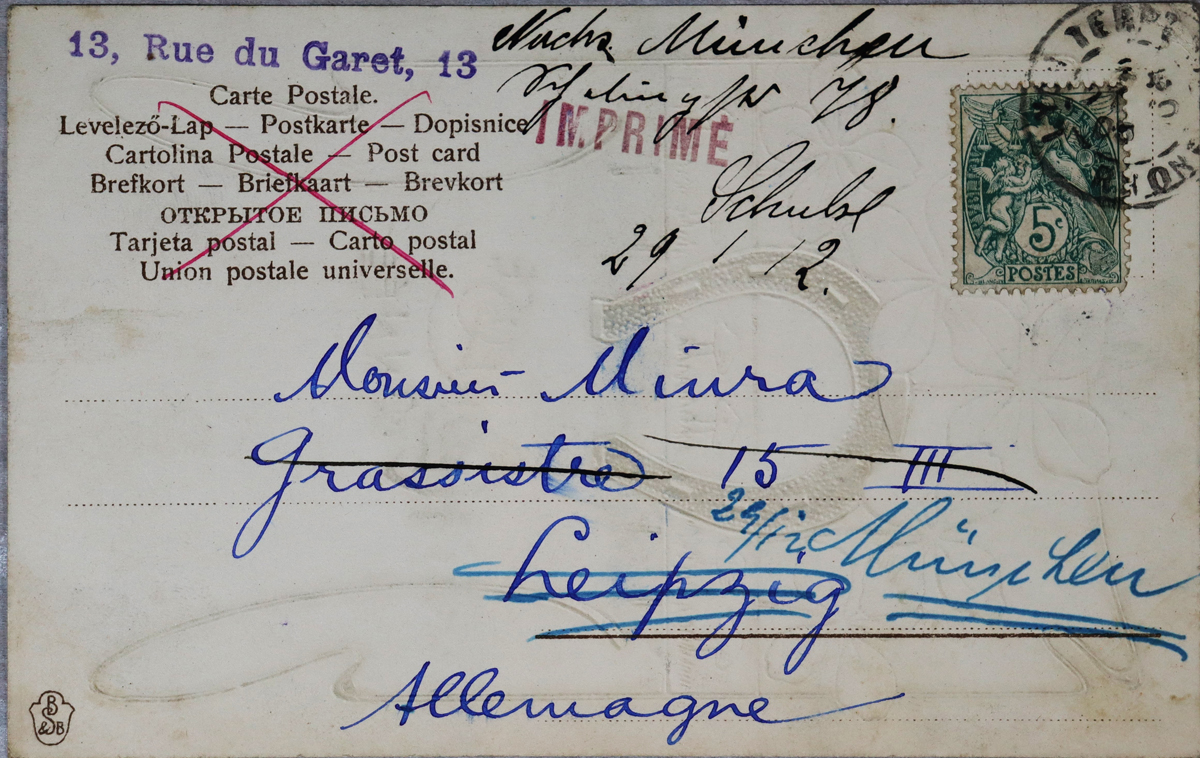 13, Rue du Garet, 13
Carte Postale.
Levelező-Lap — Postkarte — Dopisnice
Cartolina Postale — Post card
Brefkort — Briefkaart — Brevkort
ОТКРЫТОЕ ПИСЬМО
Tarjeta postal — Carto postal
Union postale universelle.
Nachs. München
78.
IMPRIMÉ
29 / 12.
5c
POSTES
Monsieur Miura
Grassistre 15 III
29/12 München
Leipzig
Allemagne
B
&W B